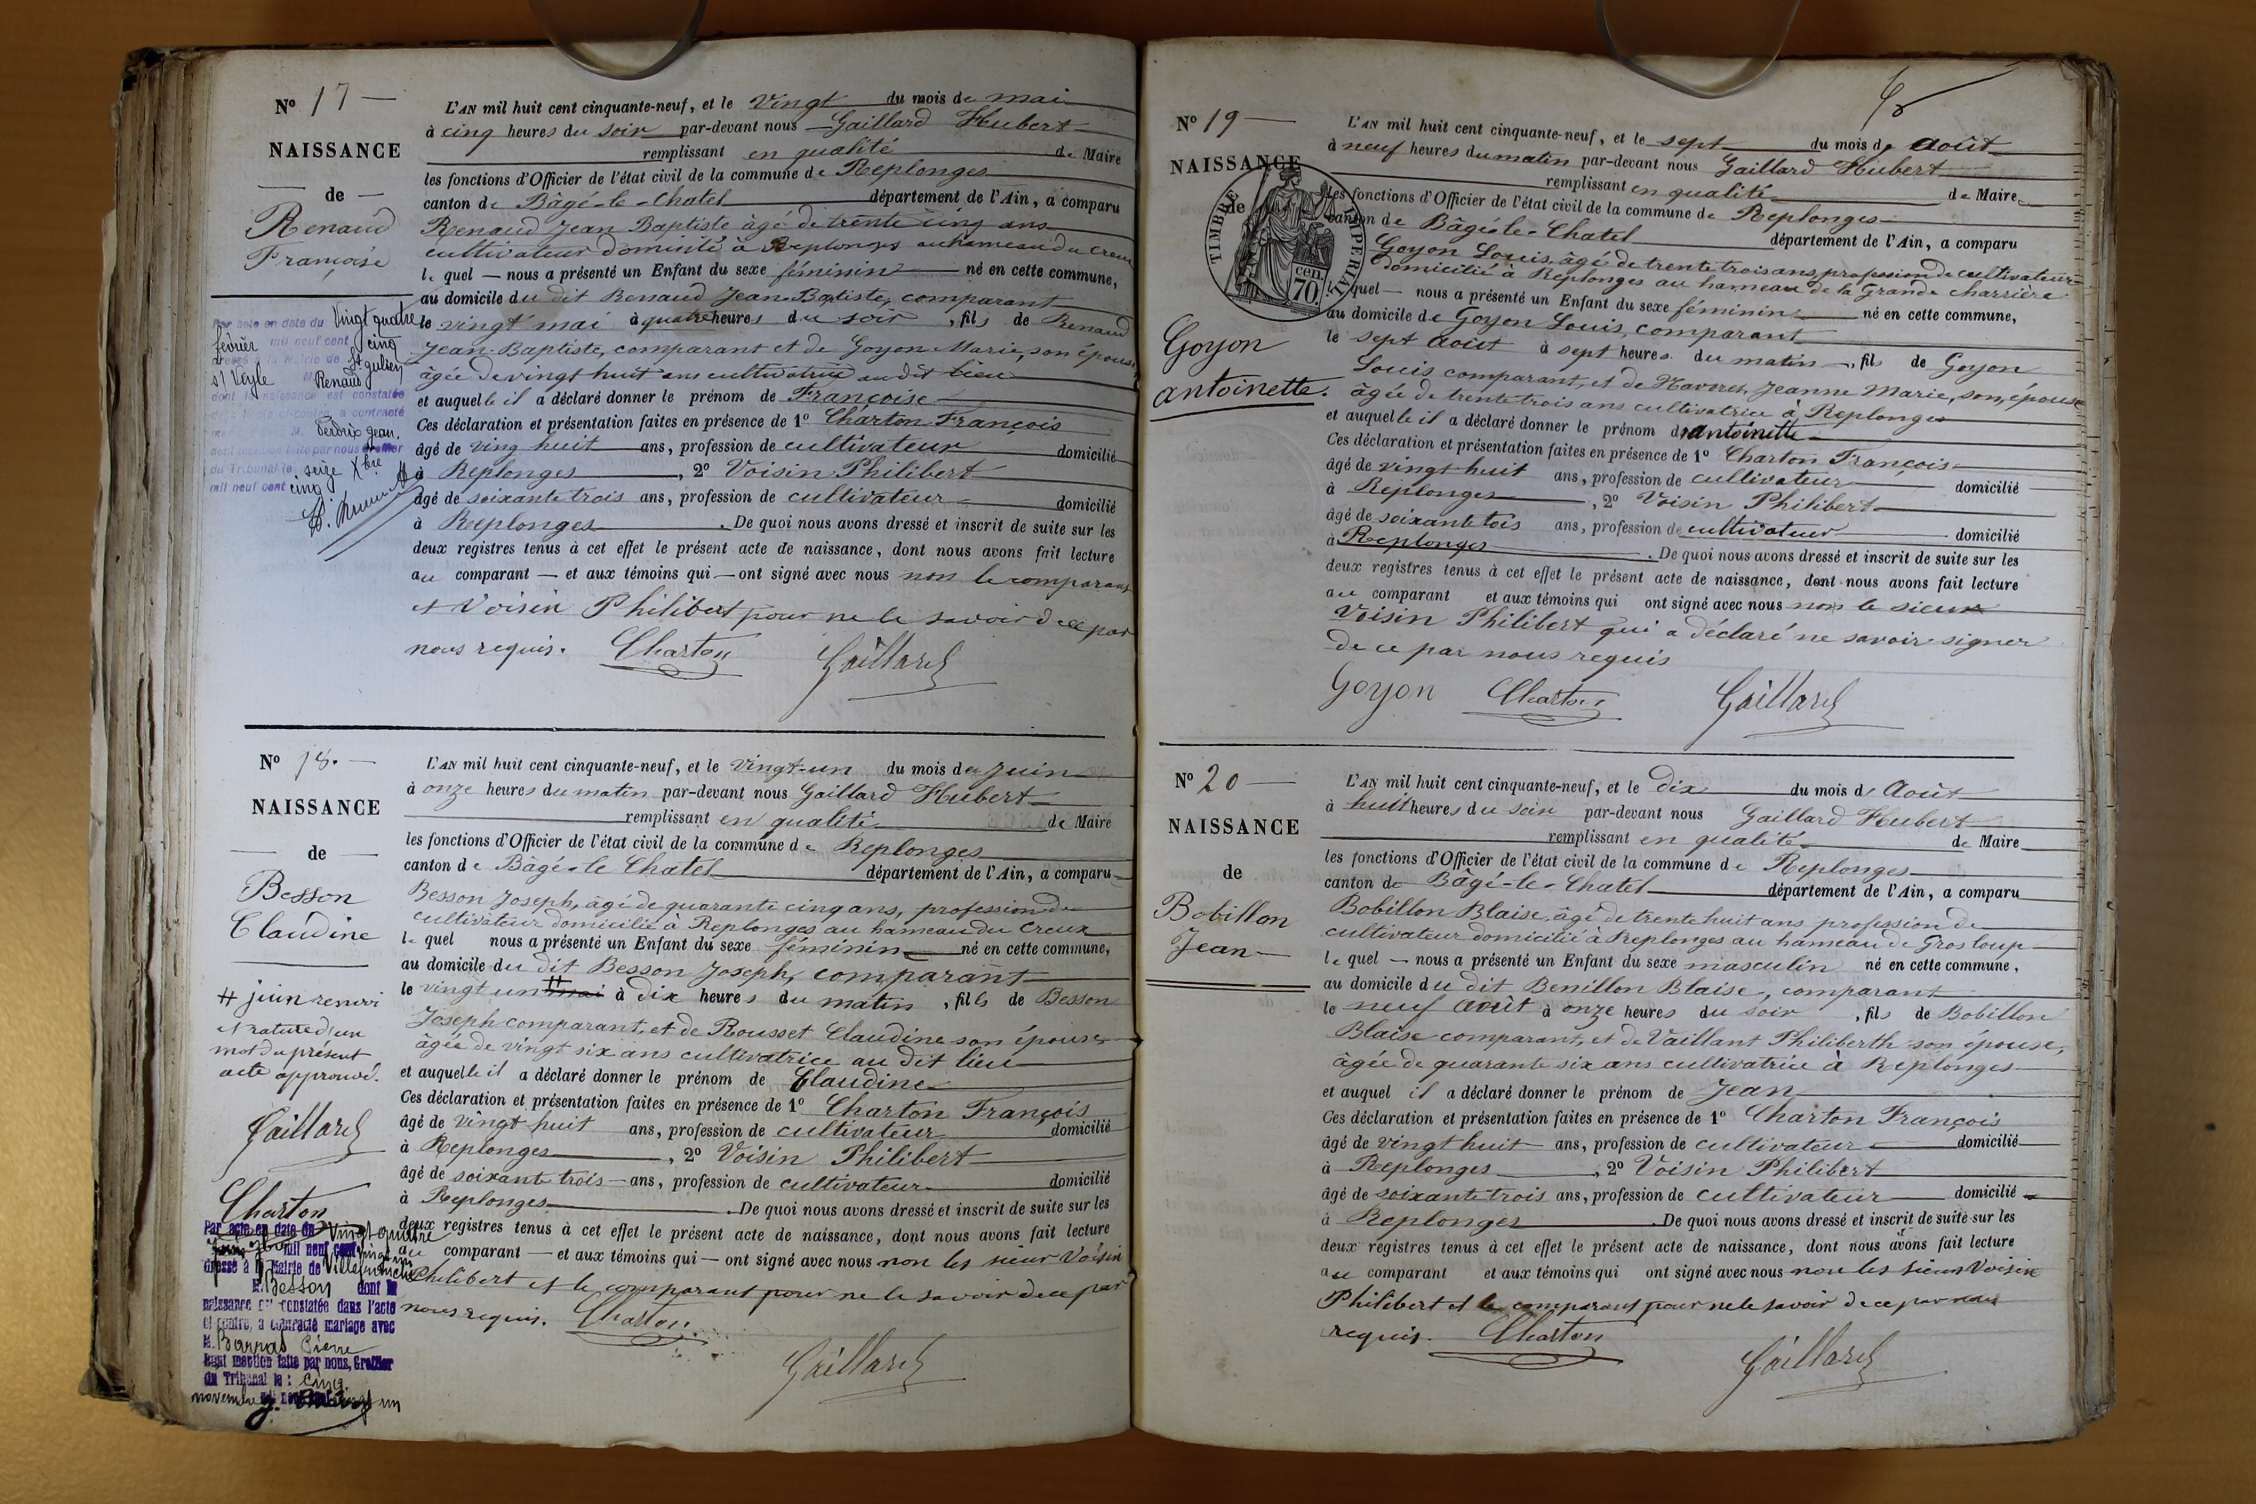 N° 17
NAISSANCE
de
Renaud
Françoise
L'AN mil huit cent cinquante-neuf, et le Vingt du mois de mai
à cinq heures du soir par-devant nous Gaillard Hubert
remplissant en qualité de Maire
les fonctions d'Officier de l'état civil de la commune de Replonges
canton de Bâgé-le-Chatel département de l'Ain, a comparu
Renaud Jean Baptiste âgé de trente cinq ans
cultivateur domicilié à Replonges au hameau du Creux
le quel — nous a présenté un Enfant du sexe féminin né en cette commune,
au domicile du dit Renaud Jean-Baptiste, comparant
le vingt mai à quatre heures du soir, fils de Renaud
Jean-Baptiste, comparant et de Goyon Marie, son épouse
âgée de vingt huit ans cultivatrice au dit lieu
et auquelle il a déclaré donner le prénom de Françoise
Ces déclaration et présentation faites en présence de 1° Charton François
âgé de ving huit ans, profession de cultivateur domicilié
à Replonges, 2° Voisin Philibert
âgé de soixante trois ans, profession de cultivateur domicilié
à Replonges. De quoi nous avons dressé et inscrit de suite sur les
deux registres tenus à cet effet le présent acte de naissance, dont nous avons fait lecture
au comparant — et aux témoins qui — ont signé avec nous non le comparant
et Voisin Philibert pour ne le savoir de ce par
nous requis. Charton Gaillard
Par acte en date du Vingt quatre
février mil neuf cent cinq
dressé à la Mairie de St Julien
s/ Veyle M Renaud
dont la naissance est constatée
dans l'acte ci-contre a contracté
M. Perdrix Jean.
dont mention faite par nous Greffier
du Tribunal le seize Xbre
mil neuf cent cinq
N° 18.
NAISSANCE
de
Besson
Claudine
# juin renvoi
et rature d'un
mot du présent
acte approuvé.
Gaillard
Charton
Par acte en date du Vingt quatre
mil neuf cent vingt un
dressé à la Mairie de Villefranche
M. Besson dont la
naissance est constatée dans l'acte
ci contre, a contracté mariage avec
M. Barras Pierre
dont mention faite par nous, Greffier
du Tribunal le : cinq
novembre mil neuf cent vingt un
L'AN mil huit cent cinquante-neuf, et le Vingt-un du mois de Juin
à onze heures du matin par-devant nous Gaillard Hubert
remplissant en qualité de Maire
les fonctions d'Officier de l'état civil de la commune de Replonges
canton de Bâgé-le Chatel département de l'Ain, a comparu
Besson Joseph, âgé de quarante cinq ans, profession de
cultivateur domicilié à Replonges au hameau du Creux
le quel nous a présenté un Enfant du sexe féminin né en cette commune,
au domicile du dit Besson Joseph, comparant
le vingt un # mai à dix heures du matin, fils de Besson
Joseph comparant, et de Rousset Claudine son épouse
âgée de vingt six ans cultivatrice au dit lieu
et auquelle il a déclaré donner le prénom de Claudine
Ces déclaration et présentation faites en présence de 1° Charton François
âgé de vingt huit ans, profession de cultivateur domicilié
à Replonges, 2° Voisin Philibert
âgé de soixante trois ans, profession de cultivateur domicilié
à Replonges. De quoi nous avons dressé et inscrit de suite sur les
deux registres tenus à cet effet le présent acte de naissance, dont nous avons fait lecture
au comparant — et aux témoins qui — ont signé avec nous non les sieur Voisin
Philibert et le comparant pour ne le savoir de ce par
nous requis. Charton.
Gaillard
N° 19
NAISSANCE
de
TIMBRE IMPERIAL
70 cen.
Goyon
antoinette.
L'AN mil huit cent cinquante-neuf, et le sept du mois de Août
à neuf heures du matin par-devant nous Gaillard Hubert
remplissant en qualité de Maire
les fonctions d'Officier de l'état civil de la commune de Replonges
canton de Bâgé-le-Chatel département de l'Ain, a comparu
Goyon Louis, âgé de trente trois ans, profession de cultivateur
domicilié à Replonges au hameau de la Grande Charrière
le quel — nous a présenté un Enfant du sexe féminin né en cette commune,
au domicile de Goyon Louis, comparant
le sept Août à sept heures du matin, fils de Goyon
Louis comparant, et de Jeanne Marie, son, épouse
âgée de trente trois ans cultivatrice à Replonges
et auquelle il a déclaré donner le prénom de antoinette
Ces déclaration et présentation faites en présence de 1° Charton François
âgé de vingt huit ans, profession de cultivateur domicilié
à Replonges, 2° Voisin Philibert
âgé de soixante tois ans, profession de cultivateur domicilié
à Replonges. De quoi nous avons dressé et inscrit de suite sur les
deux registres tenus à cet effet le présent acte de naissance, dont nous avons fait lecture
au comparant et aux témoins qui ont signé avec nous non le sieur
Voisin Philibert qui a déclaré ne savoir signer
de ce par nous requis
Goyon Charton Gaillard
N° 20
NAISSANCE
de
Bobillon
Jean
L'AN mil huit cent cinquante-neuf, et le Dix du mois de Août
à huit heures du soir par-devant nous Gaillard Hubert
remplissant en qualité de Maire
les fonctions d'Officier de l'état civil de la commune de Replonges
canton de Bâgé-le-Chatel département de l'Ain, a comparu
Bobillon Blaise, âgé de trente huit ans profession de
cultivateur domicilié à Replonges au hameau de Gros loup
le quel — nous a présenté un Enfant du sexe masculin né en cette commune,
au domicile du dit Benillon Blaise, comparant
le neuf Août à onze heures du soir, fils de Bobillon
Blaise comparant, et de Vaillant Philiberth son épouse,
âgée de quarante six ans cultivatrice à Replonges
et auquel il a déclaré donner le prénom de Jean
Ces déclaration et présentation faites en présence de 1° Charton François
âgé de vingt huit ans, profession de cultivateur domicilié
à Replonges, 2° Voisin Philibert
âgé de soixante trois ans, profession de cultivateur domicilié
à Replonges. De quoi nous avons dressé et inscrit de suite sur les
deux registres tenus à cet effet le présent acte de naissance, dont nous avons fait lecture
au comparant et aux témoins qui ont signé avec nous non les sieurs Voisin
Philibert et le comparant pour ne le savoir de ce par nous
requis. Charton
Gaillard